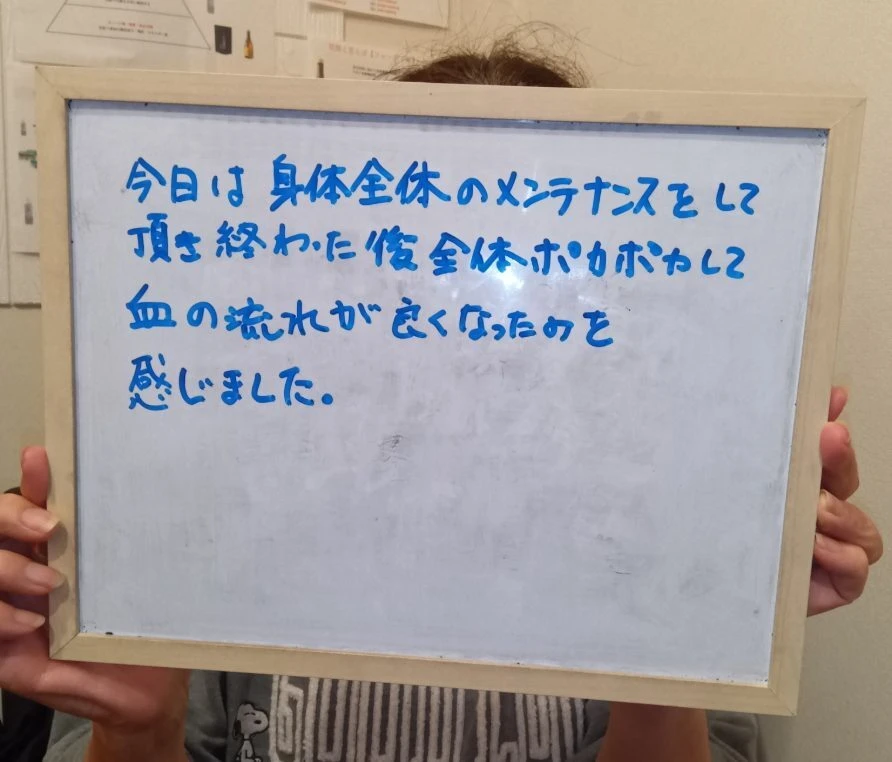 今日は身体全体のメンテナンスをして
頂き終わった後全体ポカポカして
血の流れが良くなったのを
感じました。